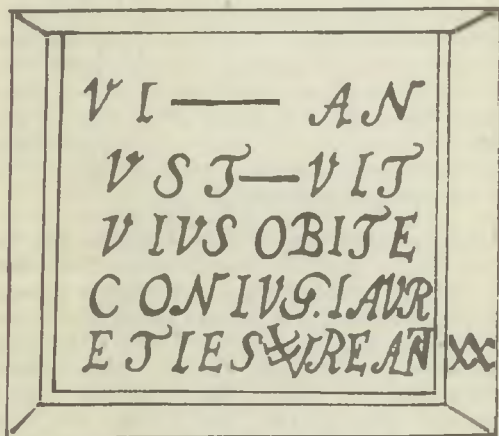 VI — AN
VST — VIT
VIVS OBITE
CONIVG.I AVR
ETIES VIREAN XX